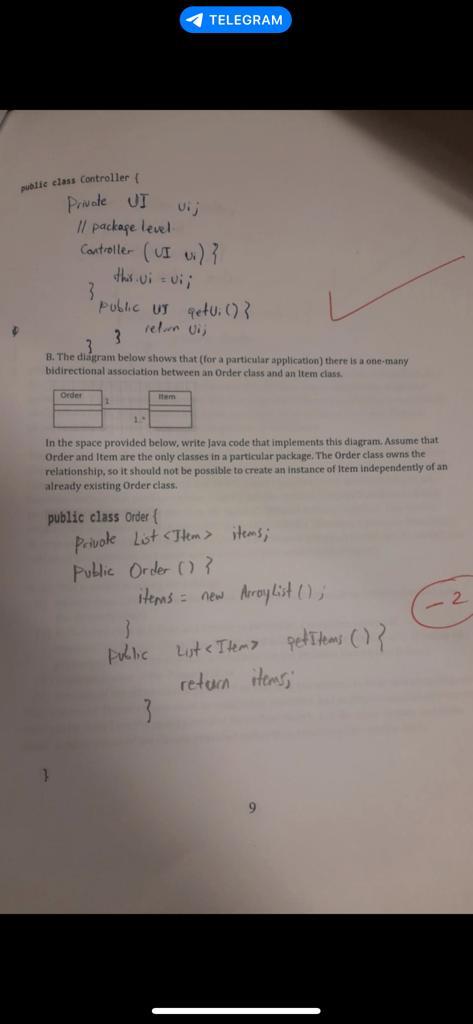 TELEGRAM
public class Controller {
Private UI ui;
// package level
Controller (UI ui) {
this.ui = ui;
}
public UI getUi() {
return ui;
}
}
B. The diagram below shows that (for a particular application) there is a one-many
bidirectional association between an Order class and an Item class.
Order
Item
1
1..*
In the space provided below, write Java code that implements this diagram. Assume that
Order and Item are the only classes in a particular package. The Order class owns the
relationship, so it should not be possible to create an instance of Item independently of an
already existing Order class.
public class Order {
Private List <Item> items;
Public Order () {
items = new ArrayList ();
}
-2
Public List <Item> getItems () {
return items;
}
}
9